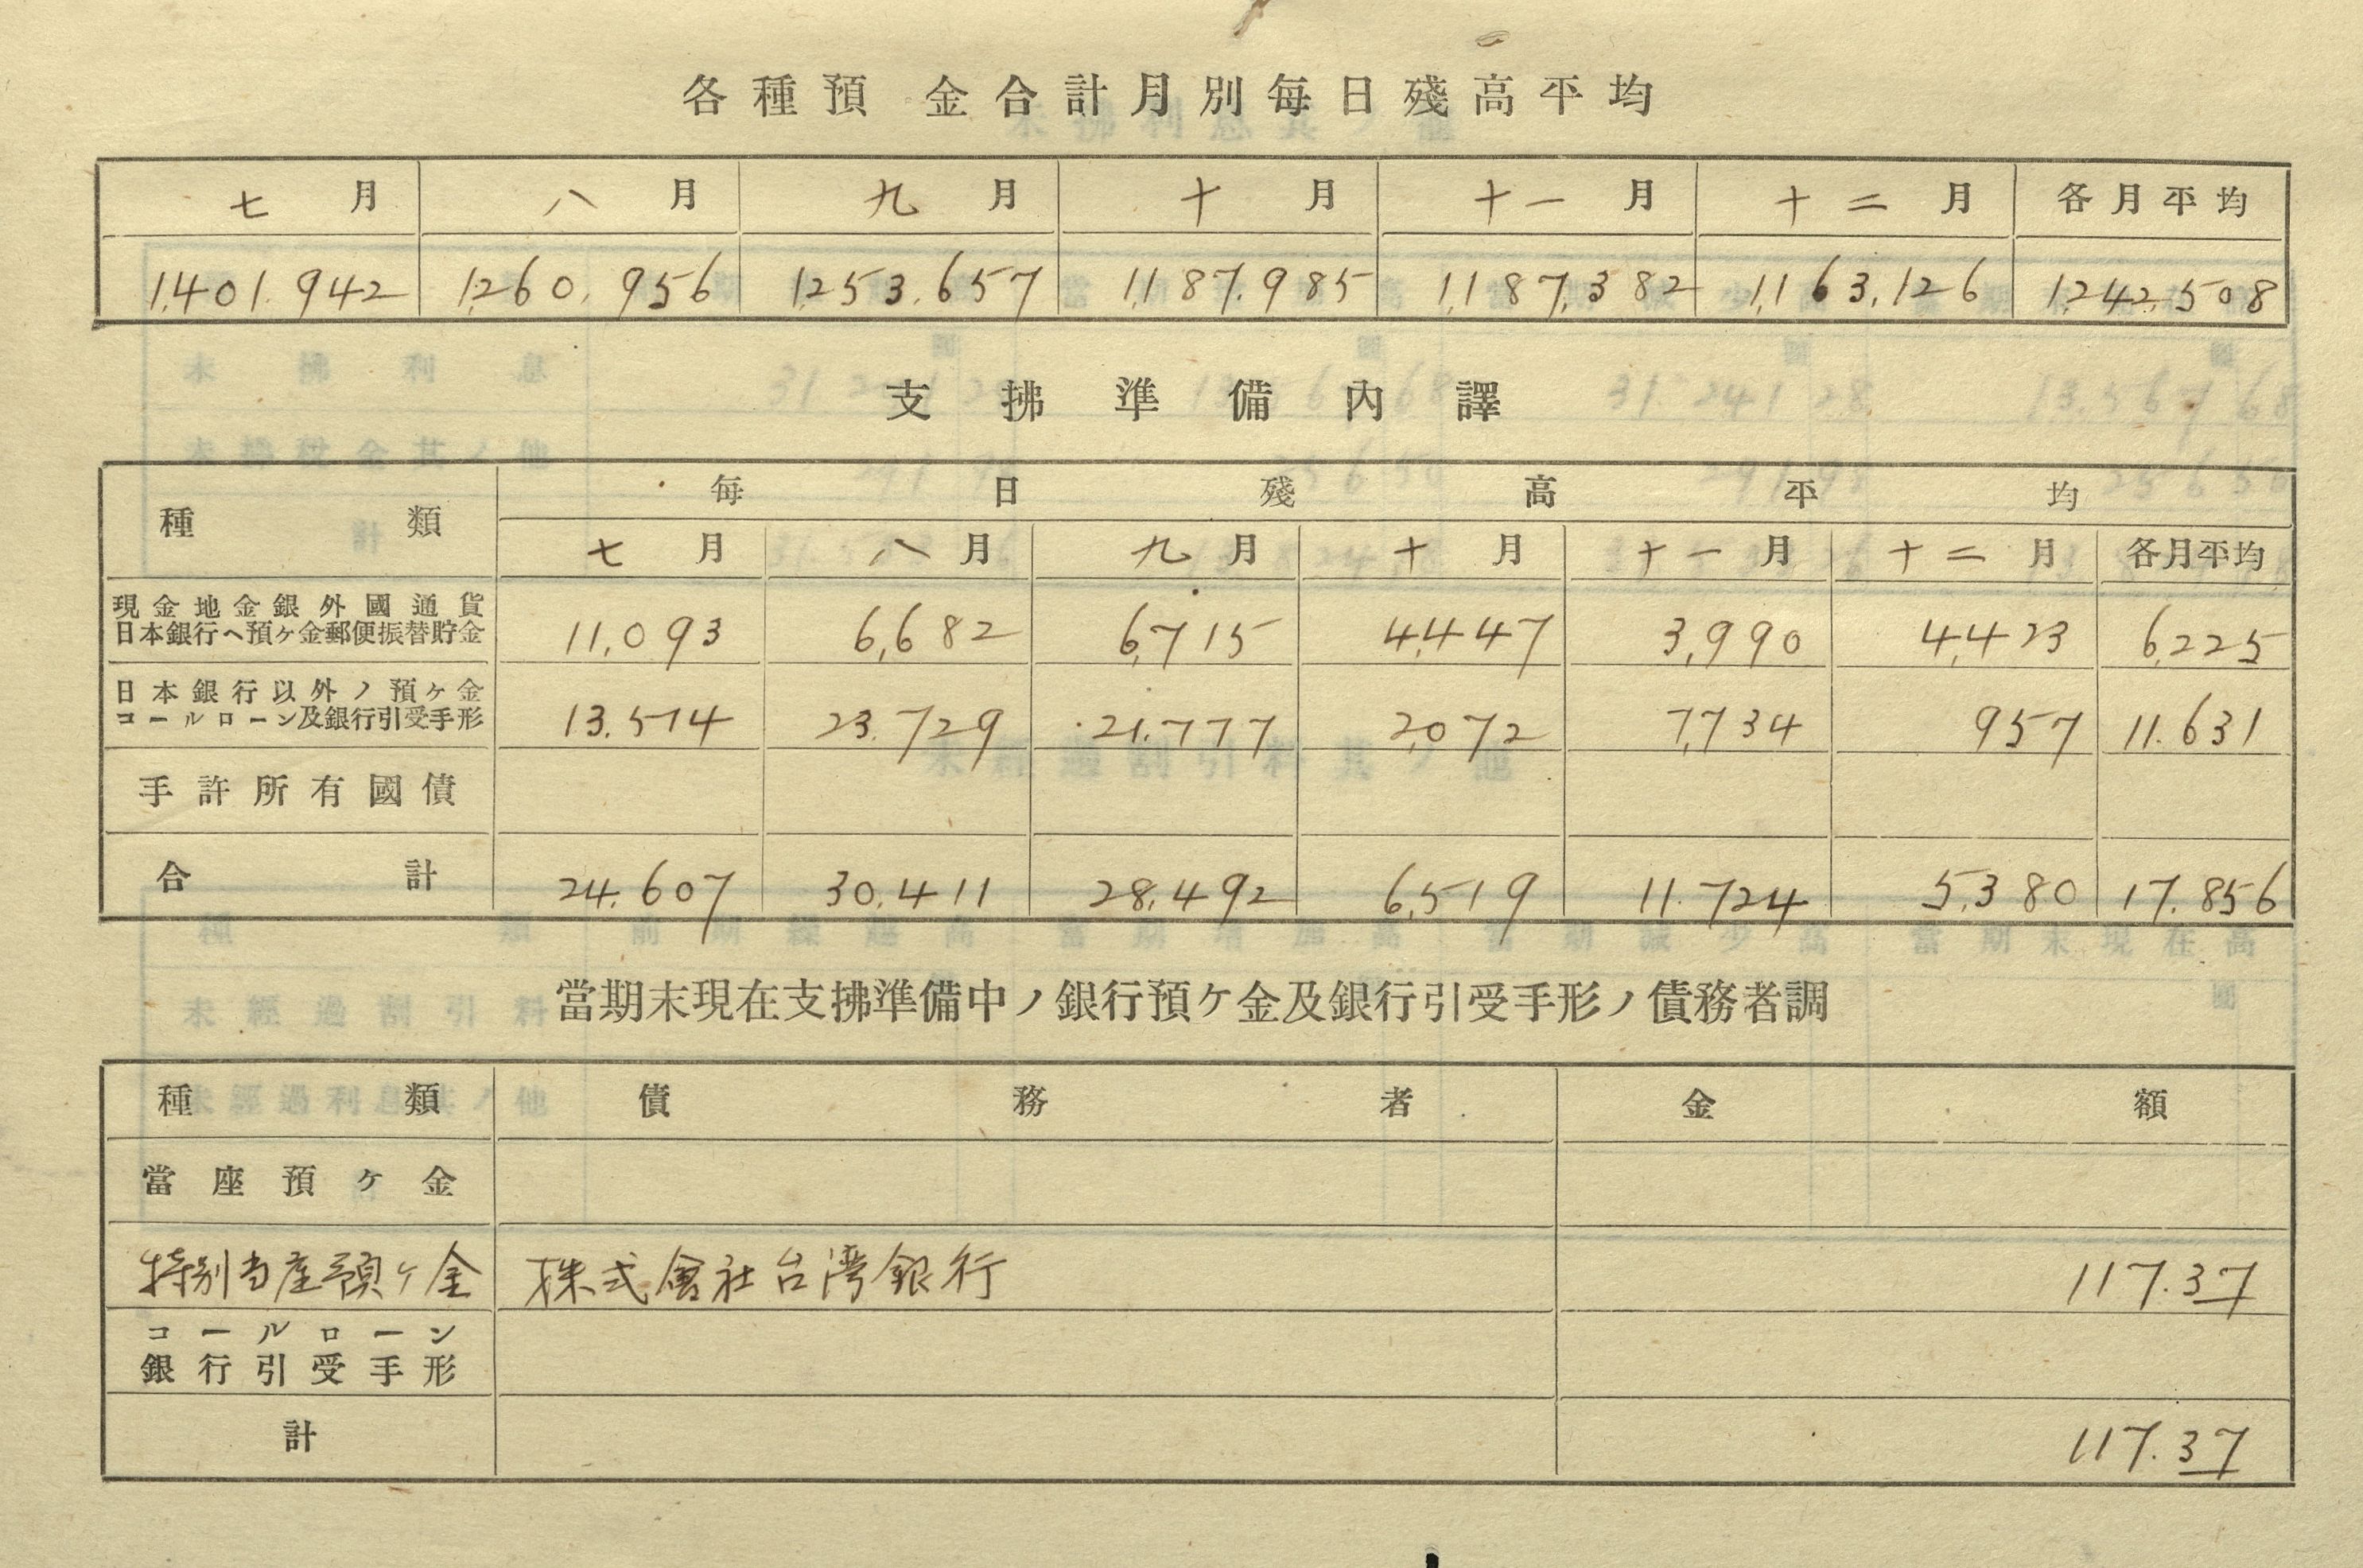 各種預金合計月別每日殘高平均
七月 八月 九月 十月 十一月 十二月 各月平均
1,401.942 1,260.956 1,253.657 1,187.985 1,187,382 1,163,126 1,242,508
支拂準備內譯
種類 每日殘高平均
七月 八月 九月 十月 十一月 十二月 各月平均
現金地金銀外國通貨
日本銀行ヘ預ヶ金郵便振替貯金 11,093 6,682 6,715 4,447 3,990 4,423 6,225
日本銀行以外ノ預ヶ金
コールローン及銀行引受手形 13.514 23.729 21.777 2,072 7,734 957 11.631
手許所有國債
合計 24.607 30.411 28.492 6,519 11.724 5,380 17.856
當期末現在支拂準備中ノ銀行預ケ金及銀行引受手形ノ債務者調
種類 債務者 金額
當座預ヶ金
特別当座預ヶ金 株式會社台湾銀行 117.37
コールローン
銀行引受手形
計 117.37